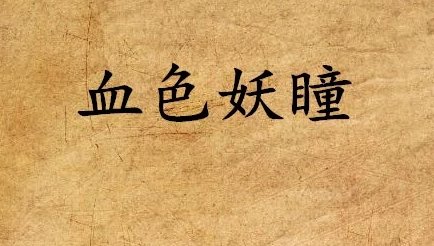 血色妖瞳